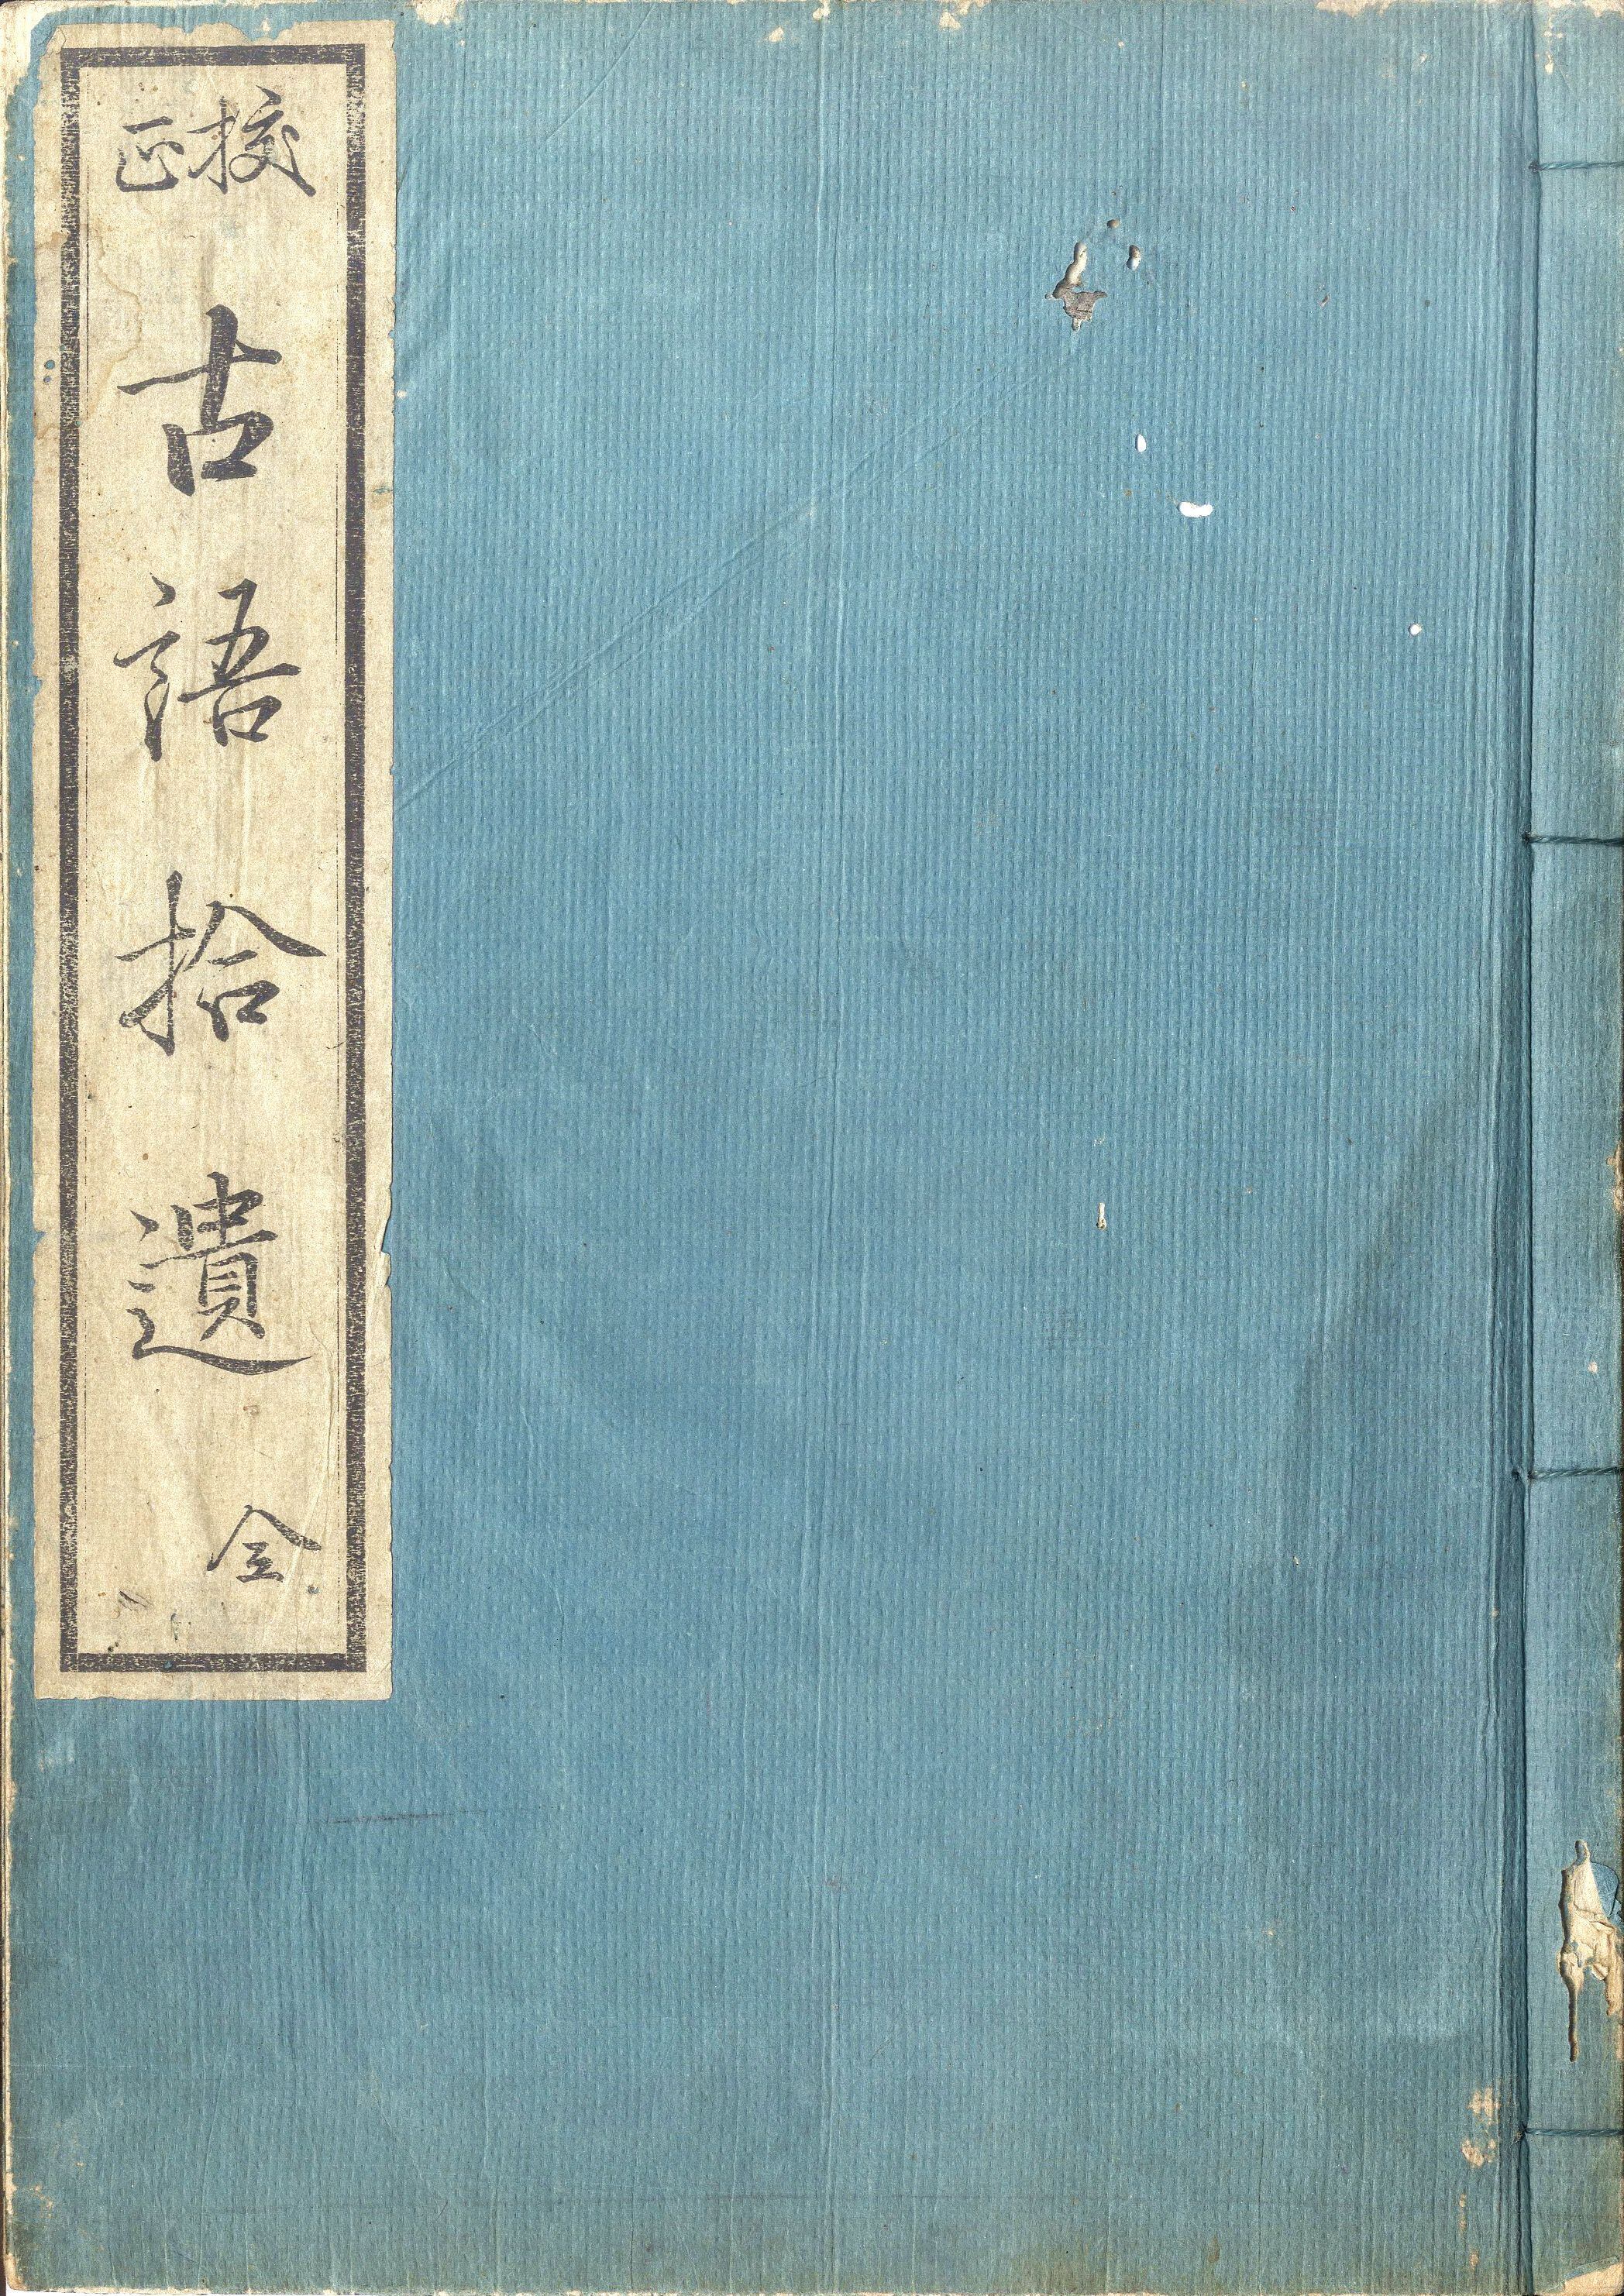 校正
古語拾遺
全